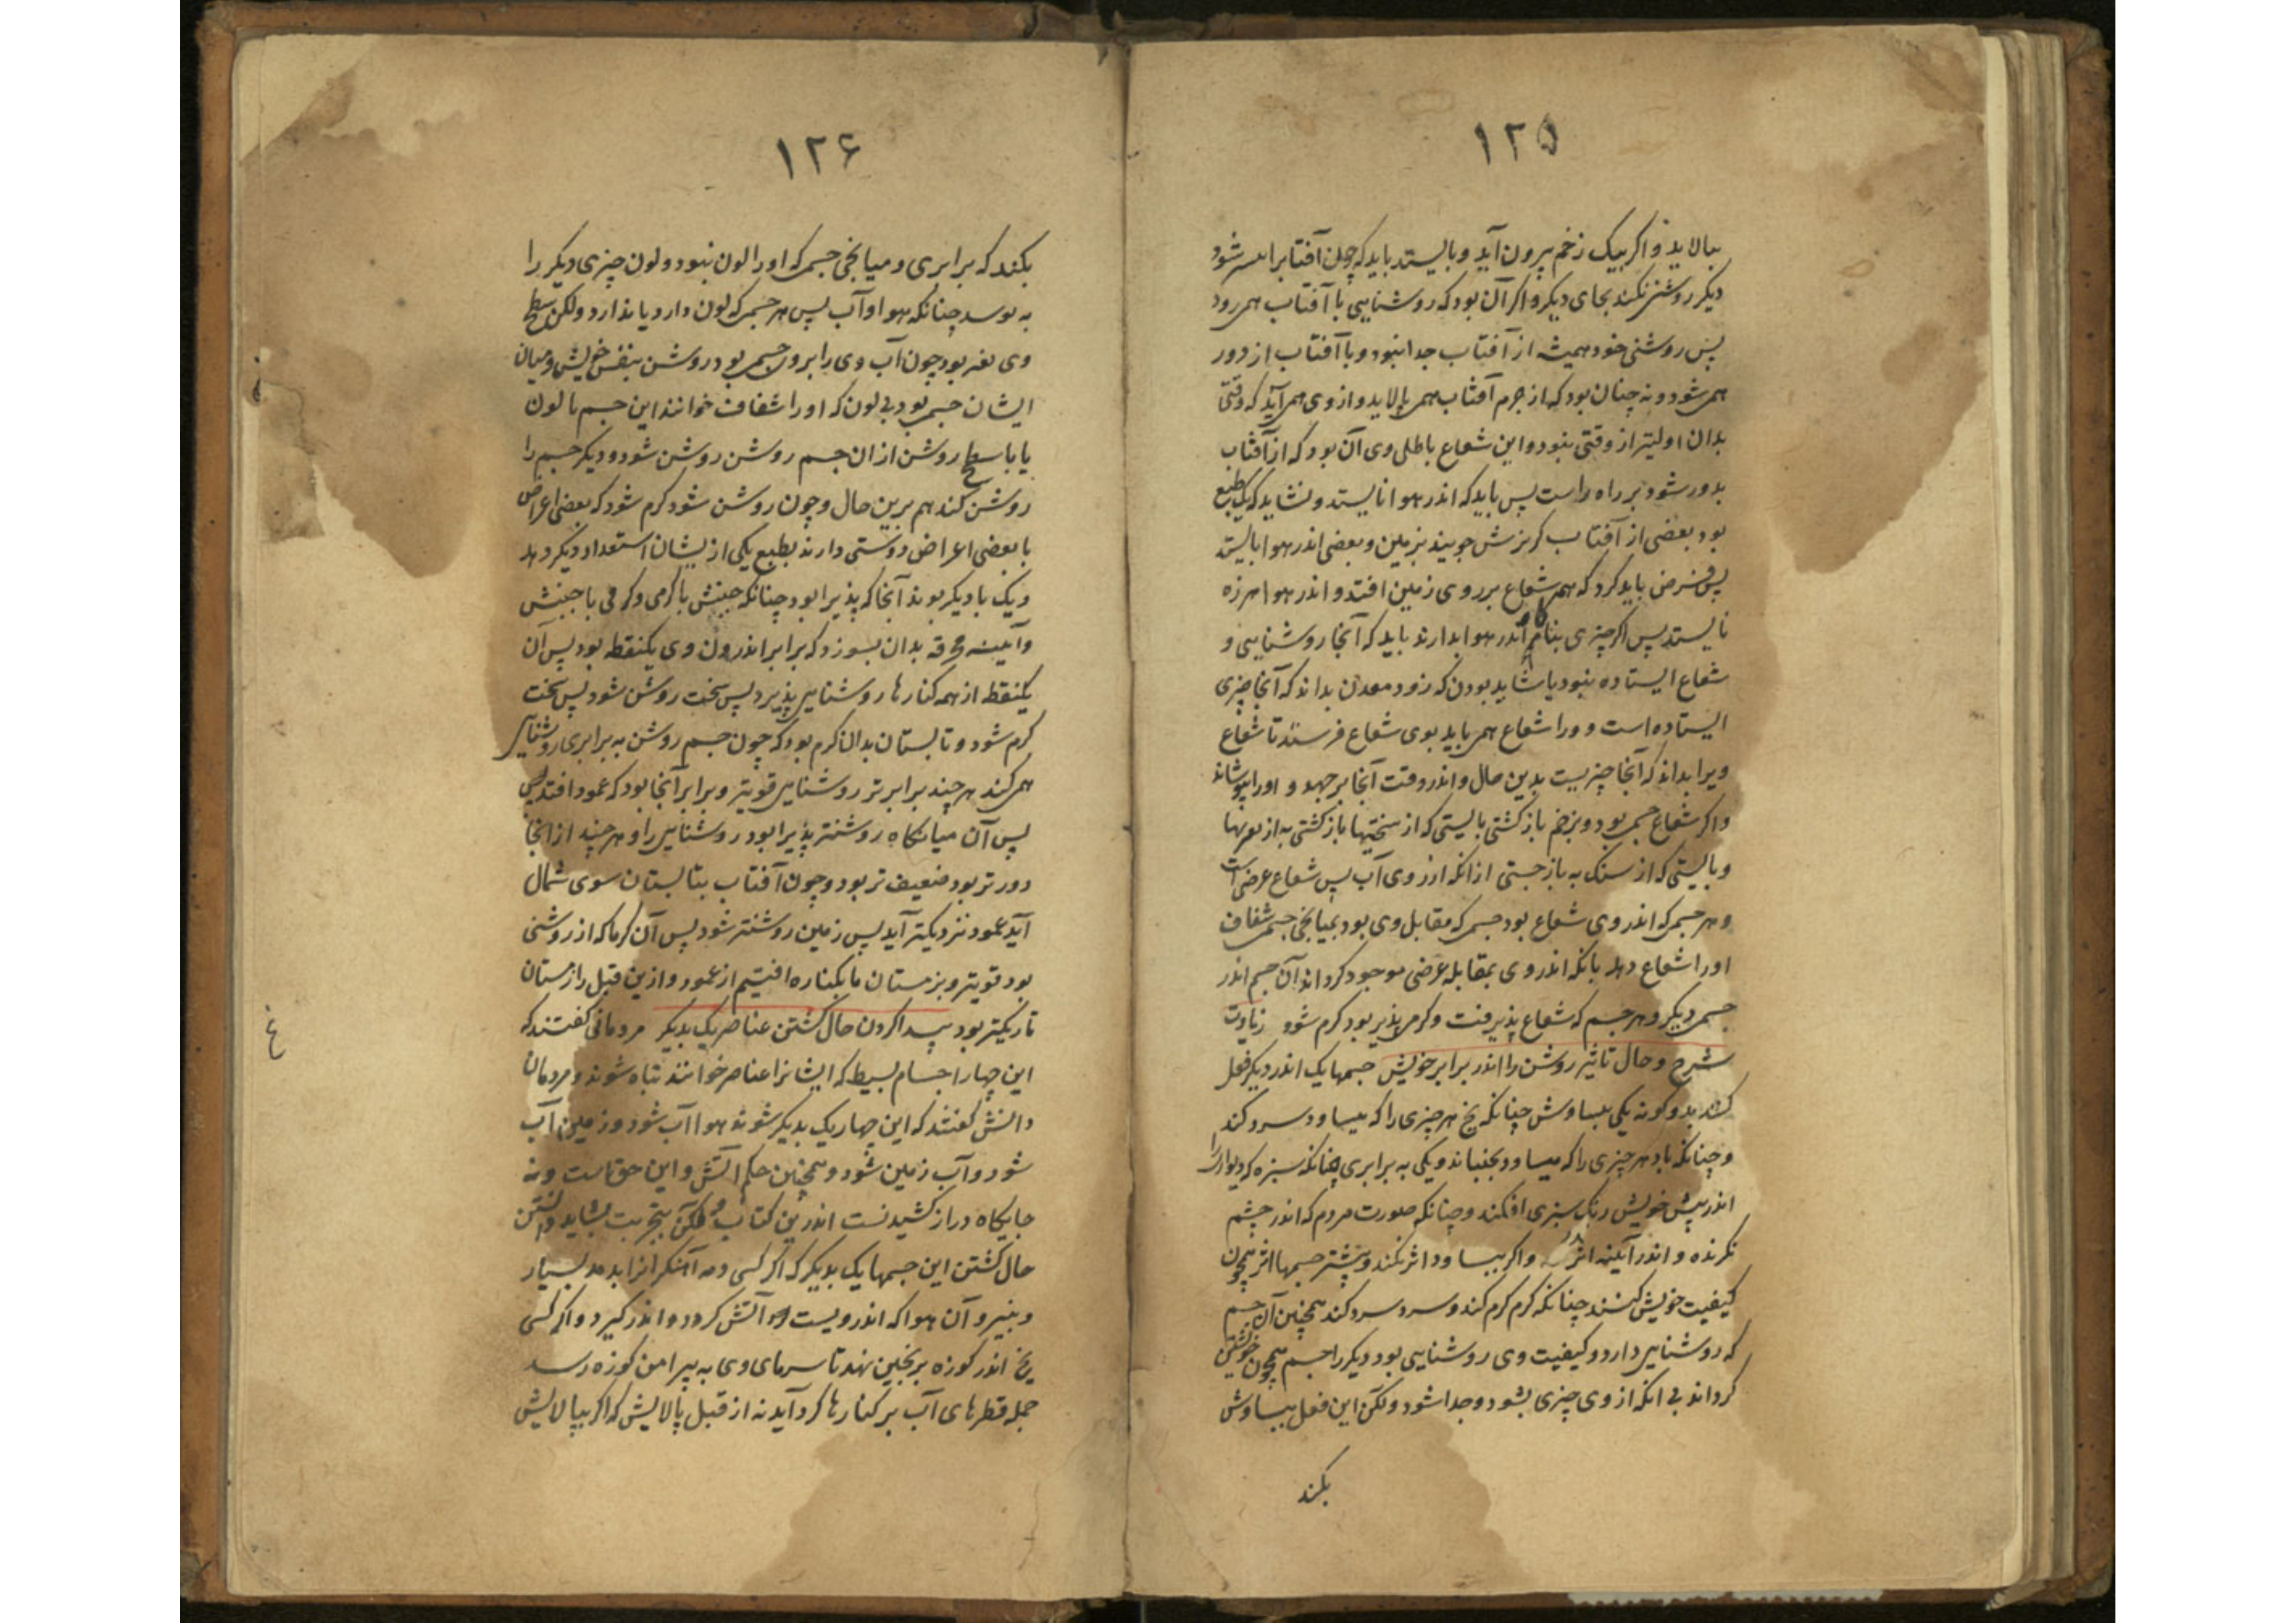 ۱۲۵
ببالاید و اکر بیک زخم بیرون آید و بایستد باید که چون آفتاب را شود
دیکر روشنی نکند بجای دیکر و اکر آن بود که روشنایی با آفتاب همی رود
پس روشنی خود همیشه از آفتاب جدا نبود و با آفتاب از دور
همی شود و نه چنان بود که از جرم آفتاب همی پالاید و از وی همی آید که وقتی
بدان اولیتر از وقتی نبود و این شعاع باطلی وی آن بود که از آفتاب
بدور شود بر راه راست پس باید که اندر هوا نایستد و نشاید که یک طبع
بود بعضی از آفتاب کریزش جویند بزمین و بعضی اندر هوا بایستد
پس فرض باید کرد که همه شعاع بر روی زمین افتد و اندر هوا هرزه
نایستد پس اکر چیزی اندر هوا بدارند باید که آنجا روشنایی و
شعاع ایستاده نبود یا شاید بودن که زود معدن بداند که آنجا چیزی
ایستاده است و ورا شعاع همی باید بوی شعاع فرستد تا شعاع
ویرا بداند که آنجا چیزیست بدین حال و اندر وقت آنجا برجهد و اورا بپوشاند
و اکر شعاع جسمی بودی و بزخم بازکشتی بایستی که از سختیها بازکشتی به از نرمیها
و بایستی که از سنک به بازجستی از آنکه از روی آب پس شعاع عرضی است
و هر جسمی که اندر وی شعاع بود جسمی که مقابل وی بود بمیانجی جسمی شفاف
اورا شعاع دهد بآنکه اندر وی بمقابله عرضی موجود کرداند آن جسم اندر
جسمی دیکر و هر جسم که شعاع پذیرفت و کرمی پذیر بود کرم شود زیادت
شرح و حال تاثیر روشن را اندر برابر خویش جسمها یک اندر دیکر فعل
کنند بدو کونه یکی ببساوش چنانکه یخ هر چیزی را که بیساود سرد کند
و چنانکه باد هر چیزی را که بیساود بجنباند و یکی به برابری چنانکه سبزه که دیوار را
اندر پیش خویش رنک سبزی افکند و چنانکه صورت مردم که اندر چشم
نکرنده و اندر آیینه اثر و اکر ببساود اثر نکند و بیشتر جسمها اثر همچون
کیفیت خویش کنند چنانکه کرم کرم کند و سرد سرد کند همچنین آن جسم
که روشنایی دارد و کیفیت وی روشنایی بود دیکر را جسم همچون خویشتن
کرداند بی آنکه از وی چیزی بشود و جدا شود ولکن این فعل ببساوش
بکند
۱۲۶
بکند که برابری و میانجی جسمی که اورا لون نبود و لون چیزی دیکر را
به چنانکه هوا و آب پس هر جسمی که لون دارد یا ندارد ولکن سطح
وی بود چون آب وی را برور جسمی بود روشن بنفس خویش و میان
ایشان جسمی بود بی لون که اورا شفاف خوانند این جسم با لون
یا با سطح روشن از آن جسم روشن روشن شود و دیکر جسم را
روشن کند هم برین حال و چون روشن شود کرم شود که بعضی اعراض
با بعضی اعراض دوستی دارند بطبع یکی از ایشان استعداد دیکر دهد
و یک با دیکر بوند آنجا که پذیرا بود چنانکه جنبش با کرمی و کرمی با جنبش
و آیینه محرقه بدان بسوزد که برابر اندرون وی یکنقطه بود پس آن
یکنقطه از همه کنارها روشنایی پذیرد پس سخت روشن شود پس سخت
کرم شود و تابستان بدان کرم بود که چون جسم روشن به برابری روشنایی
همی کند هر چند برابرتر روشنایی قویتر و برابر آنجا بود که عمود افتد پس
پس آن میانکاه روشنتر پذیرا بود روشنایی را و هر چند از آنجا
دورتر بود ضعیف تر بود و چون آفتاب بتابستان سوی شمال
آید عمود نزدیکتر آید پس زمین روشنتر شود پس آن کرما که از روشنی
بود قویتر و بزمستان ما بکناره افتیم از عمود و ازین قبل را زمستان
تاریکتر بود پیدا کردن حال کشتن عناصر یک بدیکر مردمانی کفتند که
این چهار اجسام بسیط که ایشانرا عناصر خوانند تباه شوند و مردمان
دانش کفتند که این چهار یک بدیکر شوند هوا آب شود و زمین آب
شود و آب زمین شود و همچنین حکم آتش و این حق است و نه
جایکاه دراز کشیدنست اندرین کتاب ولکن بتجربت بشاید دانستن
حال کشتن این جسمها یک بدیکر که اکر کسی دمه آهنکرانرا بدمد بسیار
و بنیرو آن هوا که اندرویست آتش کردد و اندر کیرد و اکر کسی
یخ اندر کوزه برنجین نهد تا سرمای وی به پیرامن کوزه رسد
جمله قطرهای آب بر کنارها کرد آید نه از قبل پالایش که اکر بپالایش